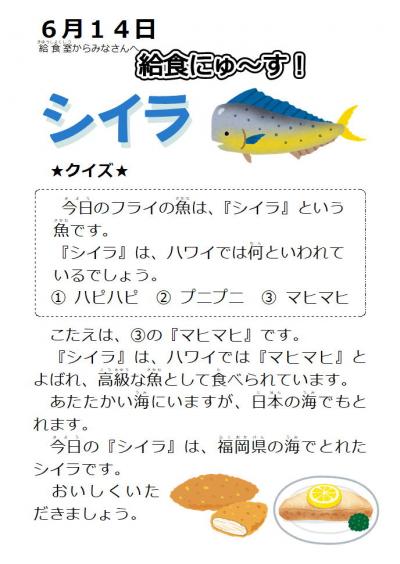 6月14日
給食室からみなさんへ
給食にゅ～す！
シイラ
★クイズ★
今日のフライの魚は、『シイラ』という
魚です。
『シイラ』は、ハワイでは何といわれて
いるでしょう。
① ハピハピ　② プニプニ　③ マヒマヒ
こたえは、③の『マヒマヒ』です。
『シイラ』は、ハワイでは『マヒマヒ』と
よばれ、高級な魚として食べられています。
あたたかい海にいますが、日本の海でもと
れます。
今日の『シイラ』は、福岡県の海でとれた
シイラです。
おいしくいた
だきましょう。